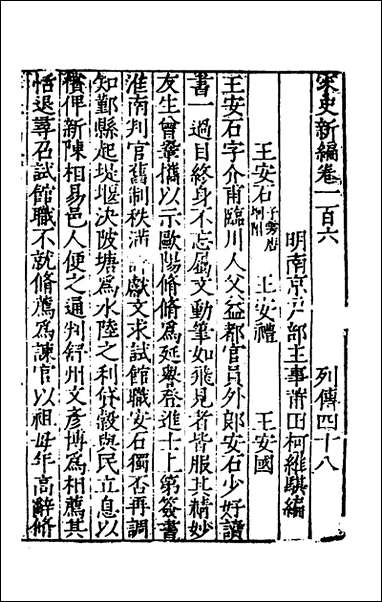 宋史新編卷一百六　列傳四十八
明南京戶部主事莆田柯維騏編
王安石子雱唐坰附　王安禮　王安國
王安石字介甫臨川人父益都官員外郎安石少好讀
書一過目終身不忘屬文動筆如飛見者皆服其精妙
友生曾鞏攜以示歐陽脩脩爲延譽登進士上第簽書
淮南判官舊制秩滿許獻文求試館職安石獨否再調
知鄞縣起堤堰決陂塘爲水陸之利貸穀與民立息以
償俾新陳相易邑人便之通判舒州文彥博爲相薦其
恬退尋召試館職不就脩薦爲諫官以祖母年高辭脩